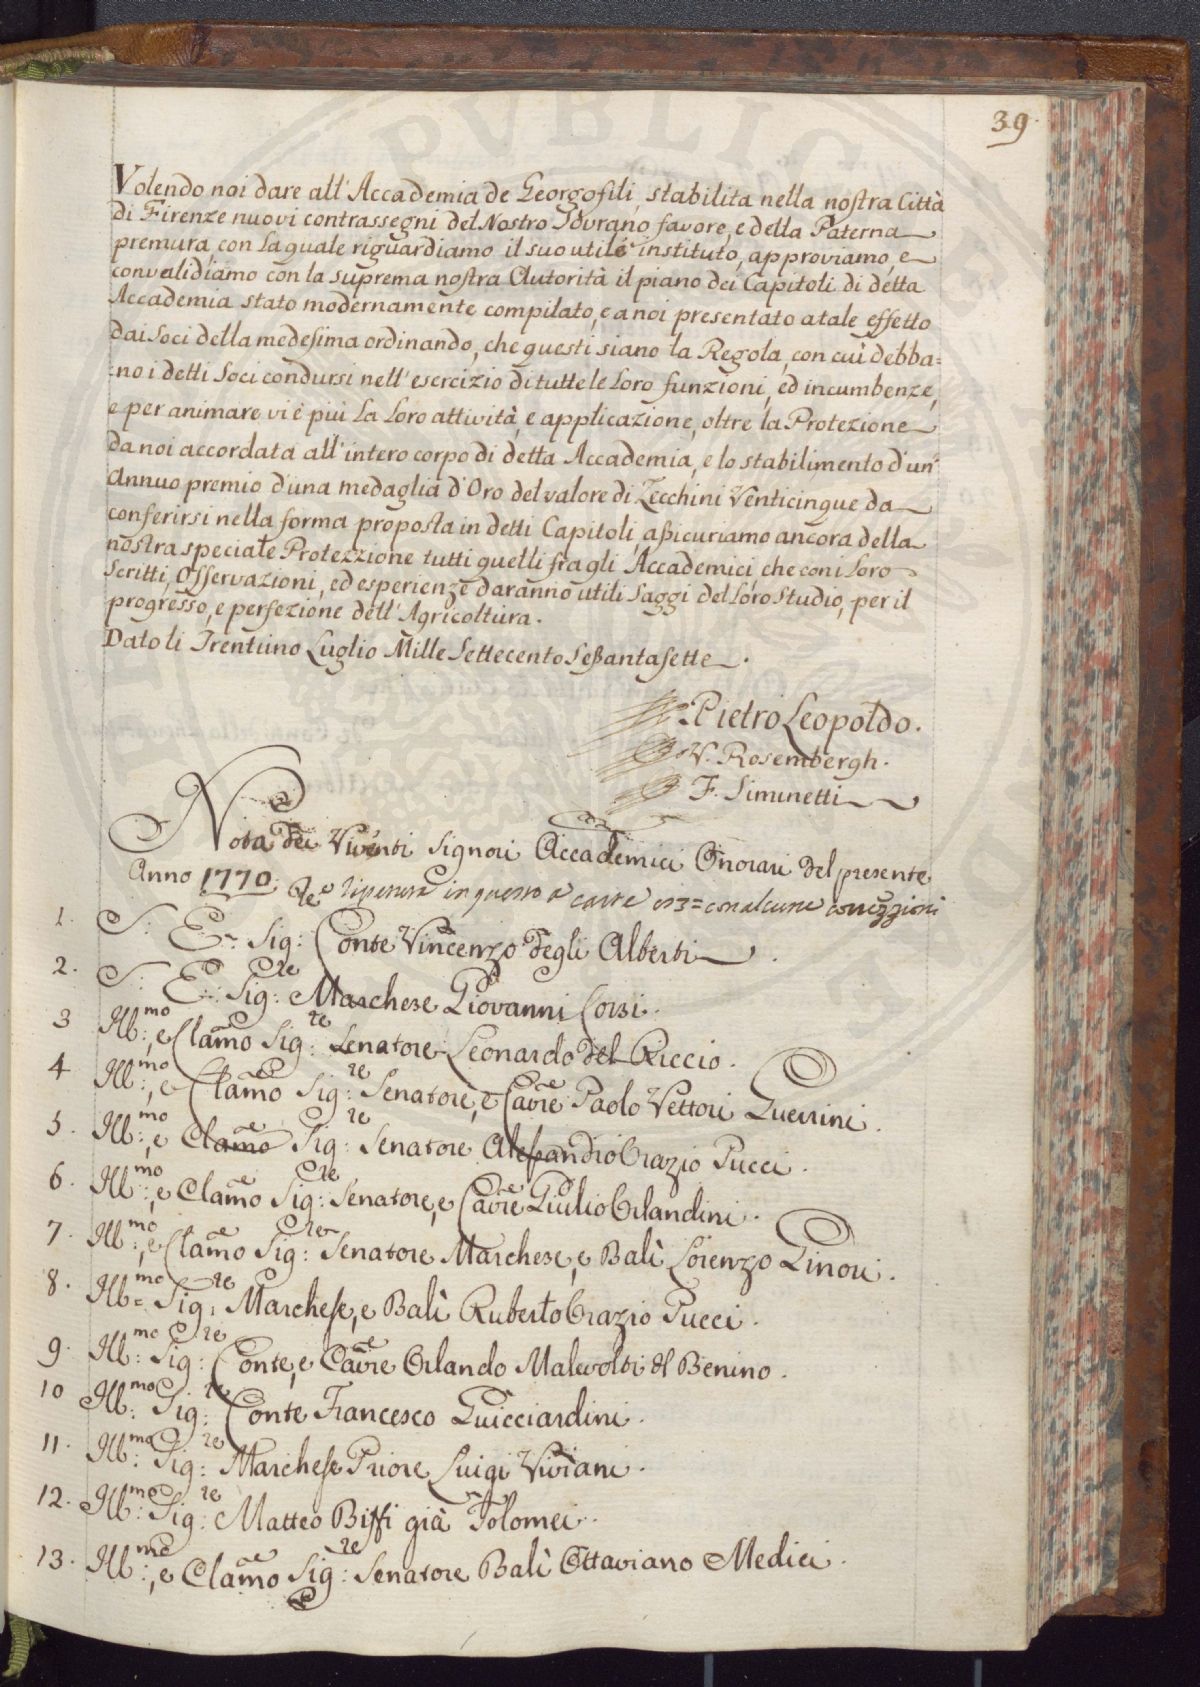 39.
Volendo noi dare all'Accademia de Georgofili, stabilita nella nostra Città
di Firenze nuovi contrassegni del Nostro Sovrano favore, e della Paterna
premura con la quale riguardiamo il suo utile instituto, approviamo, e
convalidiamo con la suprema nostra Autorità il piano dei Capitoli di detta
Accademia stato modernamente compilato, e a noi presentato a tale effetto
dai Soci della medesima ordinando, che questi siano la Regola, con cui debba=
=no i detti Soci condursi nell'esercizio di tutte le Loro funzioni, ed incumbenze,
e per animare vi è più La Loro attività, e applicazione, oltre la Protezione
da noi accordata all'intero corpo di detta Accademia, e lo stabilimento d'un'
Annuo premio d'una medaglia d'Oro del valore di Zecchini Venticinque da
conferirsi nella forma proposta in detti Capitoli, assicuriamo ancora della
nostra speciale Protezzione tutti quelli fra gli Accademici, che con i Loro
Scritti, Osservazioni, ed esperienze daranno utili Saggi del Loro Studio, per il
progresso, e perfezione dell'Agricoltura.
Dato li Trentuno Luglio Mille Settecento Sessantasette.
Pietro Leopoldo.
V. Rosembergh.
F. Siminetti
Nota dei Viventi Signori Accademici Onorari del presente
Anno 1770. in questo a carte con alcune correzzioni
1. S. E. Sig: Conte Vincenzo degli Alberti.
2. S. E. Sig:re Marchese Giovanni Corsi.
3 Ill:mo, e Clamo Sig:re Senatore Leonardo del Riccio.
4 Ill:mo, e Clamo Sig:re Senatore, e Cavre Paolo Vettori Guerrini.
5. Ill:mo, e Clamo Sig:re Senatore Alessandro Orazio Pucci.
6. Ill:mo, e Clamo Sig:re Senatore, e Cavre Giulio Orlandini.
7. Ill:mo, e Clamo Sig:re Senatore Marchese, e Balì Lorenzo Ginori.
8. Ill=mo Sig:re Marchese, e Balì Ruberto Orazio Pucci.
9. Ill:mo Sig:re Conte, e Cavre Orlando Malevolti del Benino.
10 Ill:mo Sig:re Conte Francesco Guicciardini.
11. Ill:mo Sig:re Marchese Priore Luigi Viviani.
12. Ill:mo Sig:re Matteo Biffi già Tolomei.
13. Ill:mo, e Clamo Sig:re Senatore Balì Ottaviano Medici.